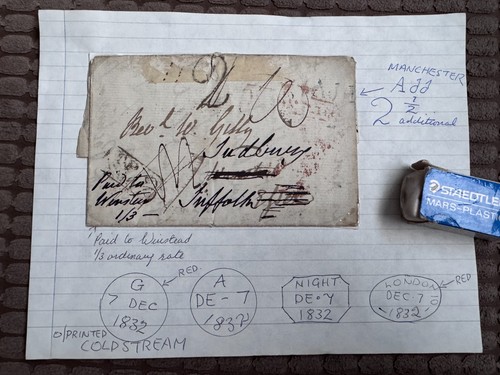 MANCHESTER
Add
2 1/2
additional
Revd. W. Gilly
Sudbury
Suffolk
Paid to
Winster
1/3 —
STAEDTLER
MARS-PLAST
Paid to Winstead
1/3 ordinary rate
RED.
RED
G
7 DEC
1832
A
DE - 7
1832
NIGHT
DE . 7
1832
LONDON
DEC 7
1832
O/PRINTED
COLDSTREAM